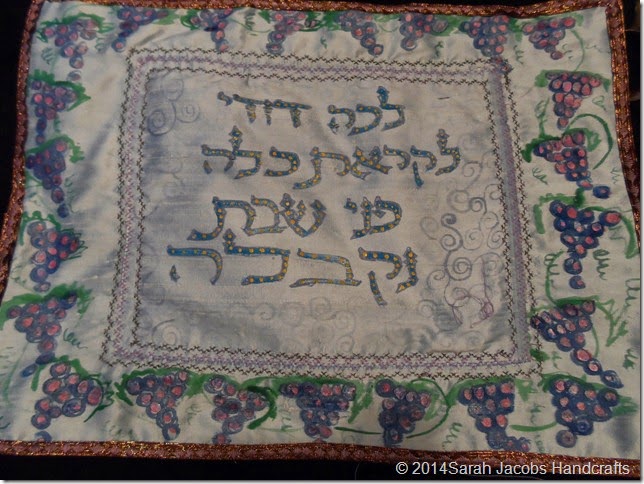 לכה דודי
לקראת כלה
פני שבת
נקבלה
© 2014Sarah Jacobs Handcrafts